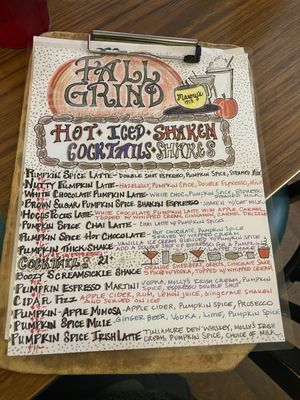 FALL
GRIND
HOT · ICED · SHAKEN
COCKTAILS · SHAKES
PUMPKIN SPICE LATTE - DOUBLE SHOT ESPRESSO, PUMPKIN SPICE, STEAMED MILK
NUTTY PUMPKIN LATTE - HAZELNUT, PUMPKIN SPICE, DOUBLE ESPRESSO, MILK
WHITE CHOCOLATE PUMPKIN LATTE - WHITE CHOC, PUMPKIN SPICE,
BROWN SUGAR PUMPKIN SPICE SHAKEN ESPRESSO - SHAKEN W/ OAT MILK
HOCUS POCUS LATTE - WHITE CHOCOLATE, PUMPKIN LATTE W/ APPLE CARAMEL
TOPPED W/ WHIPPED CREAM, CINNAMON, CARAMEL DRIZZLE
PUMPKIN SPICE CHAI LATTE - CHAI W/ PUMPKIN SPICE
PUMPKIN SPICE HOT CHOCOLATE - HOT CHOCOLATE, PUMPKIN SPICE
W/ WHIPPED CREAM
PUMPKIN THICK SHAKE - VANILLA ICE CREAM BLENDED W/ PUMPKIN SPICE
ADD A DOUBLE SHOT OF ESPRESSO FOR A PUMPKIN
COCKTAILS 21+
BOOZY SCREAMSICLE SHAKE - ORANGE SHERBERT, OREOS, CHOCOLATE SAUCE
SPIKED W/ VODKA, TOPPED W/ WHIPPED CREAM
PUMPKIN ESPRESSO MARTINI - VODKA, MOLLY'S IRISH CREAM, PUMPKIN
SPICE, ESPRESSO DOUBLE SHOT
CIDER FIZZ - APPLE CIDER, RUM, LEMON JUICE, GINGERALE SHAKEN
AND SERVED ON ICE
PUMPKIN-APPLE MIMOSA - APPLE CIDER, PUMPKIN SPICE, PROSECCO
PUMPKIN SPICE MULE - GINGER BEER, VODKA, LIME, PUMPKIN SPICE
PUMPKIN SPICE IRISH LATTE - TULLAMORE DEW WHISKEY, MOLLY'S IRISH
CREAM, PUMPKIN SPICE, CHOICE OF MILK